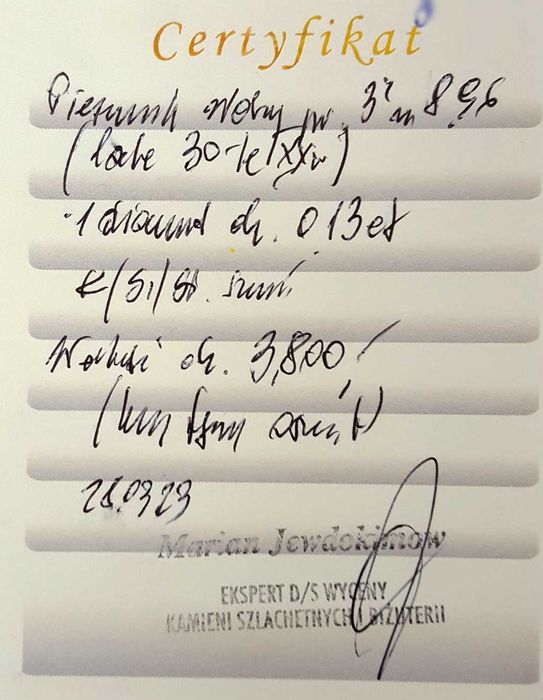 Certyfikat
Pierścionek złoty pr. 3 m 8,96
(lata 30-te XXw)
1 diament ok. 0,13 ct
K/Si/st.
Wartość ok. 3,800
(trzy tysiące osiemset)
28.03.23
Marian Jewdokimow
EKSPERT D/S WYCENY
KAMIENI SZLACHETNYCH I BIŻUTERII